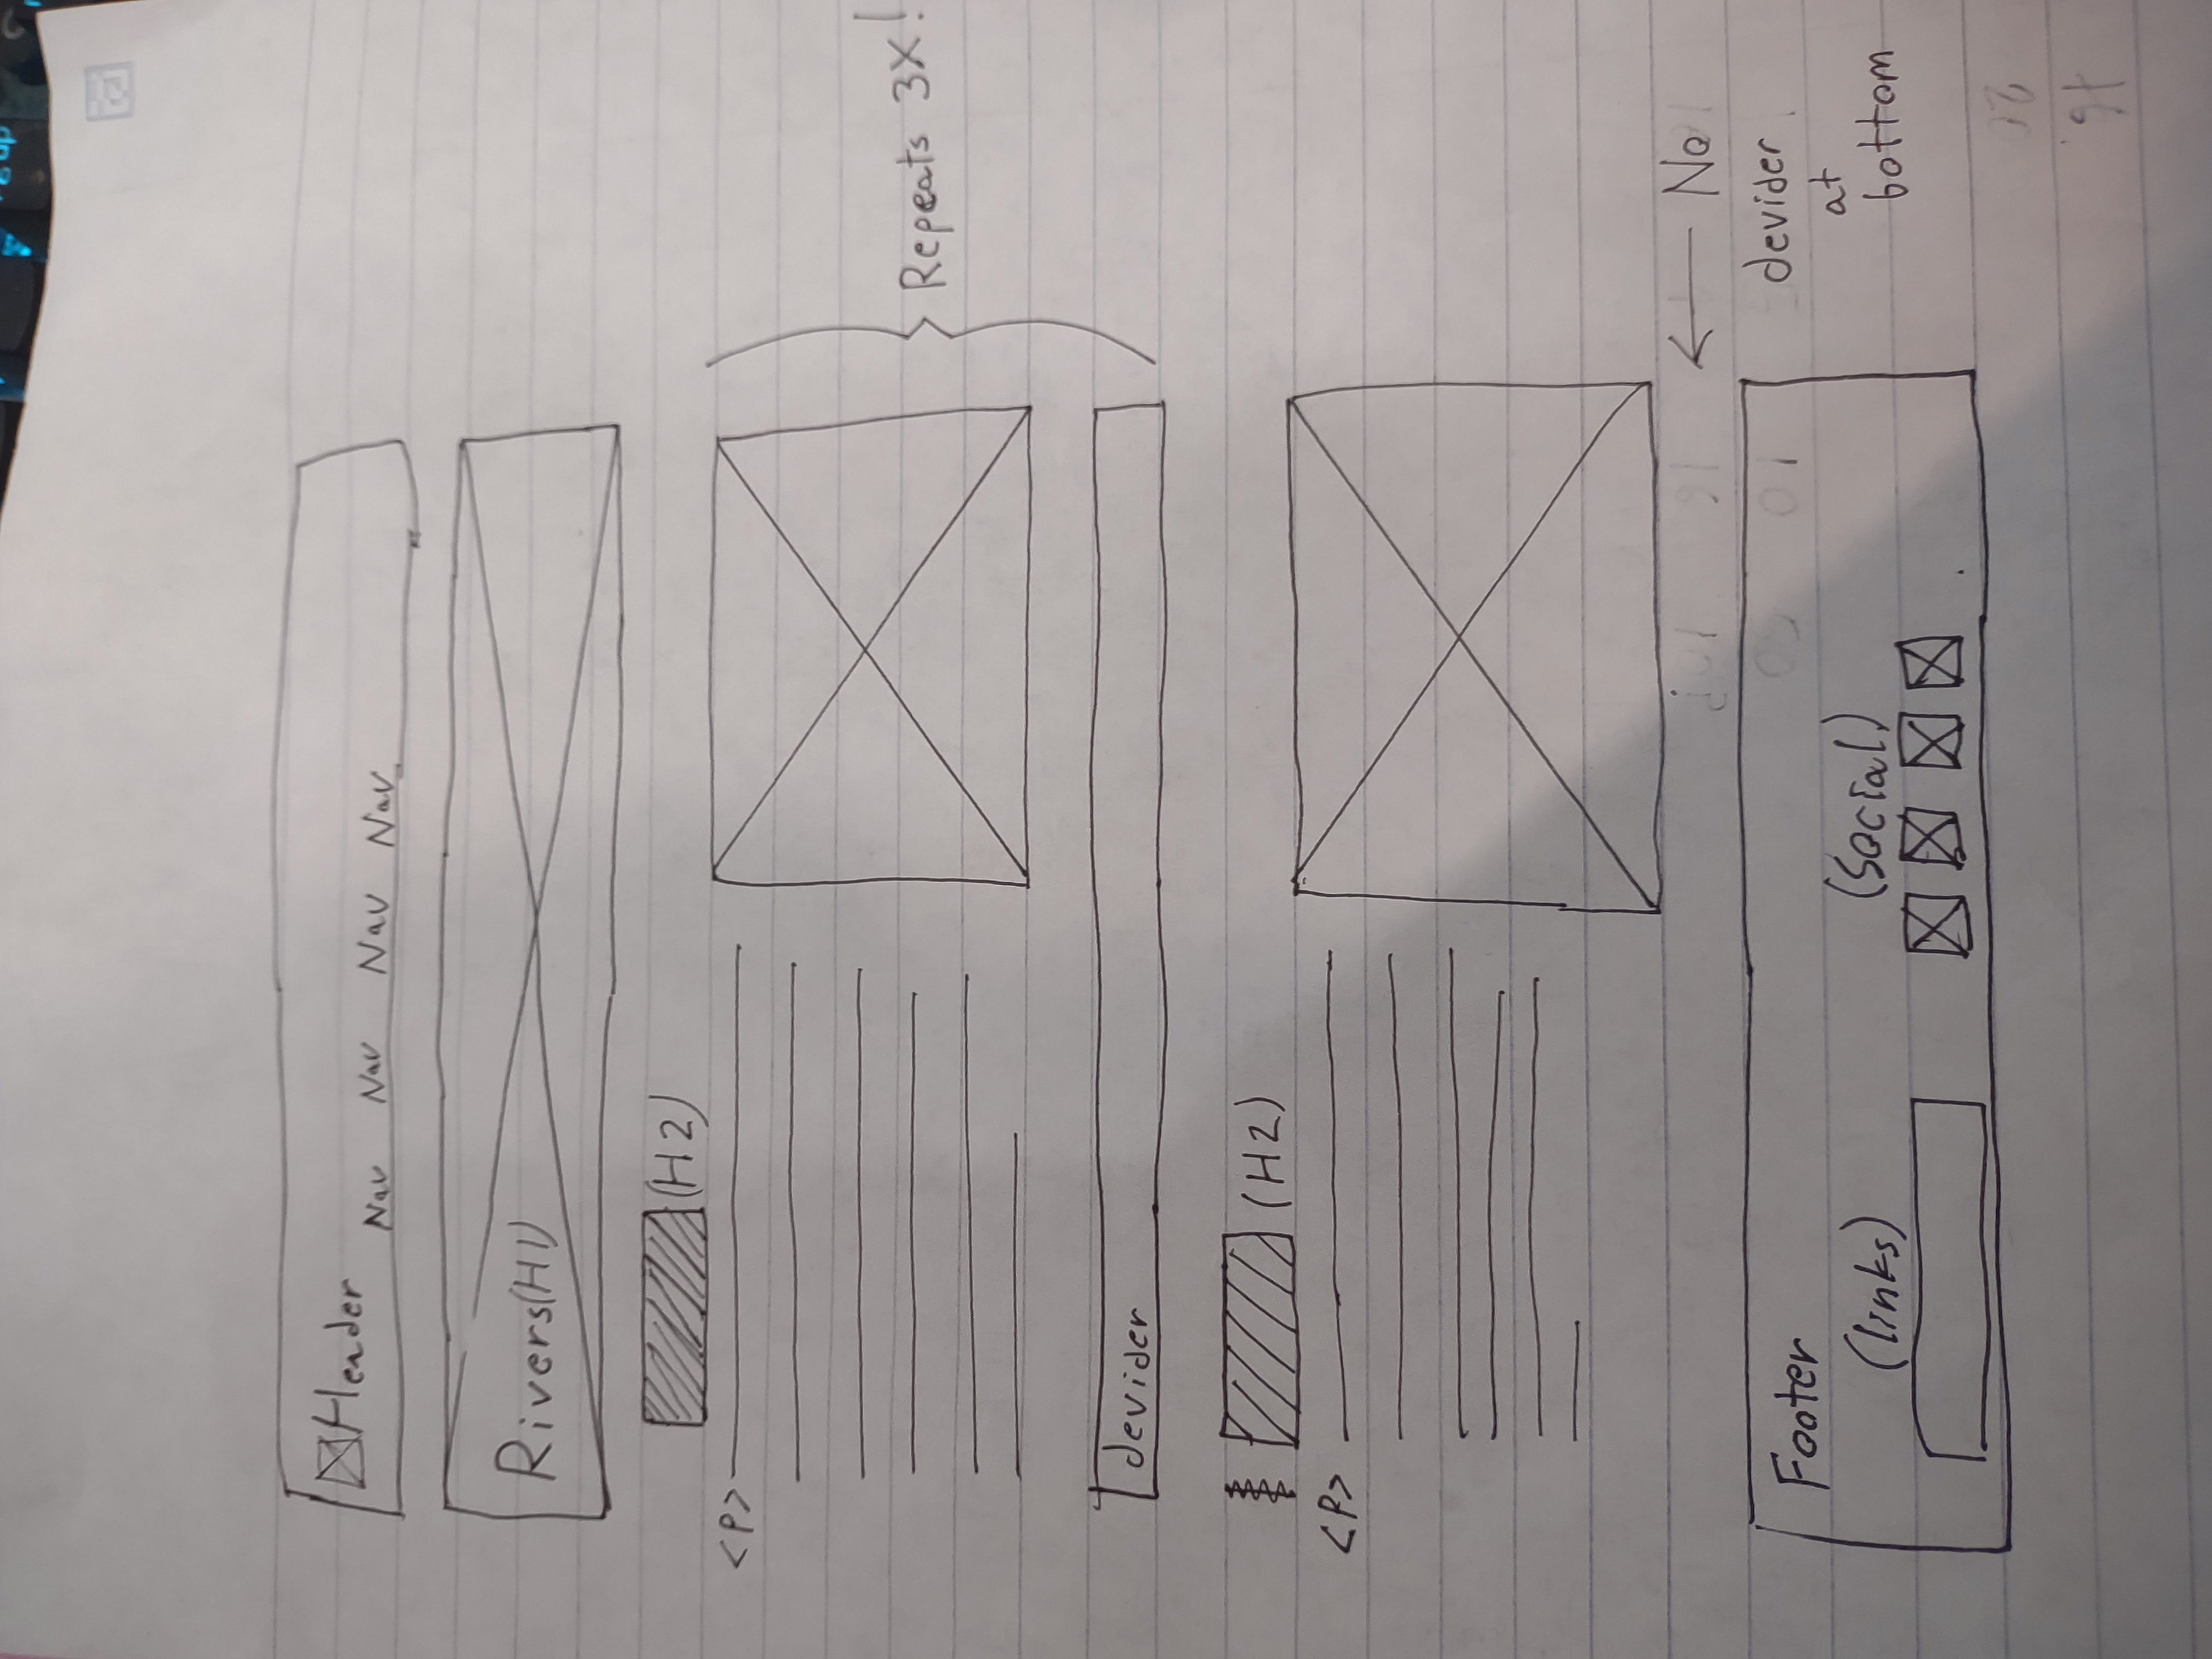 Header
Nav Nav Nav Nav
Rivers(H1)
(H2)
<P>
Repeats 3X!
devider
(H2)
<P>
No
devider
at
bottom
Footer
(links)
(Social)